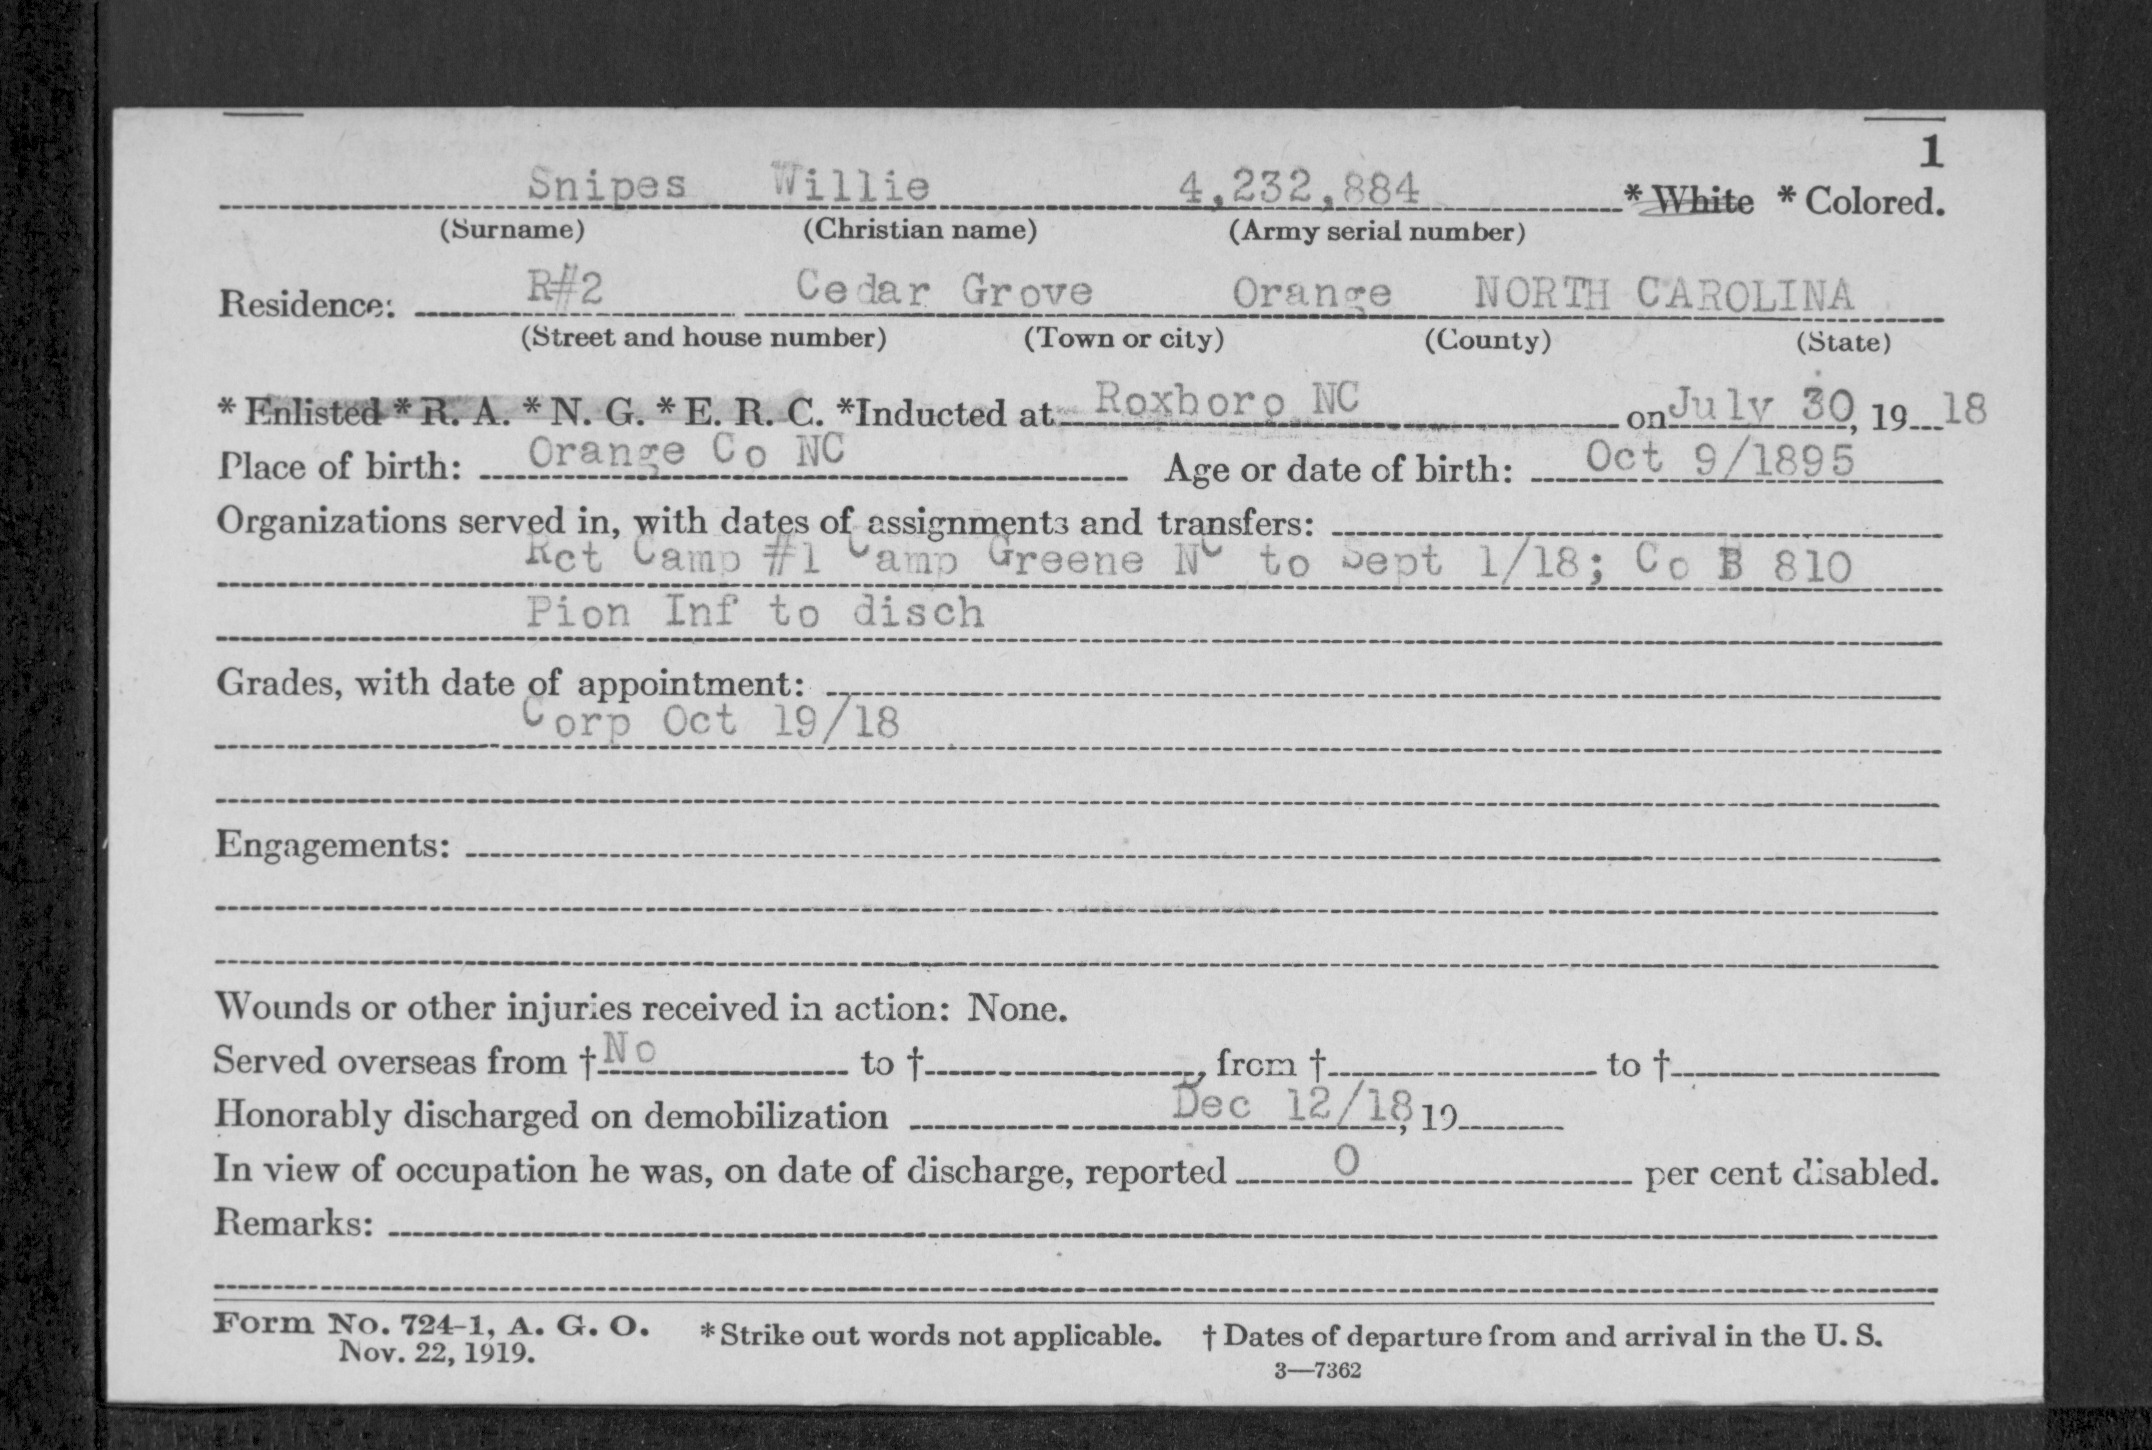 1
Snipes Willie 4,232,884 * White * Colored.
(Surname) (Christian name) (Army serial number)
Residence: R#2 Cedar Grove Orange NORTH CAROLINA
(Street and house number) (Town or city) (County) (State)
* Enlisted * R. A. * N. G. * E. R. C. *Inducted at Roxboro NC on July 30, 19 18
Place of birth: Orange Co NC Age or date of birth: Oct 9/1895
Organizations served in, with dates of assignments and transfers:
Rct Camp #1 Camp Greene NC to Sept 1/18; Co B 810
Pion Inf to disch
Grades, with date of appointment:
Corp Oct 19/18
Engagements:
Wounds or other injuries received in action: None.
Served overseas from † No to †, from † to †
Honorably discharged on demobilization Dec 12/18, 19
In view of occupation he was, on date of discharge, reported 0 per cent disabled.
Remarks:
Form No. 724-1, A. G. O. * Strike out words not applicable. † Dates of departure from and arrival in the U. S.
Nov. 22, 1919.
3—7362